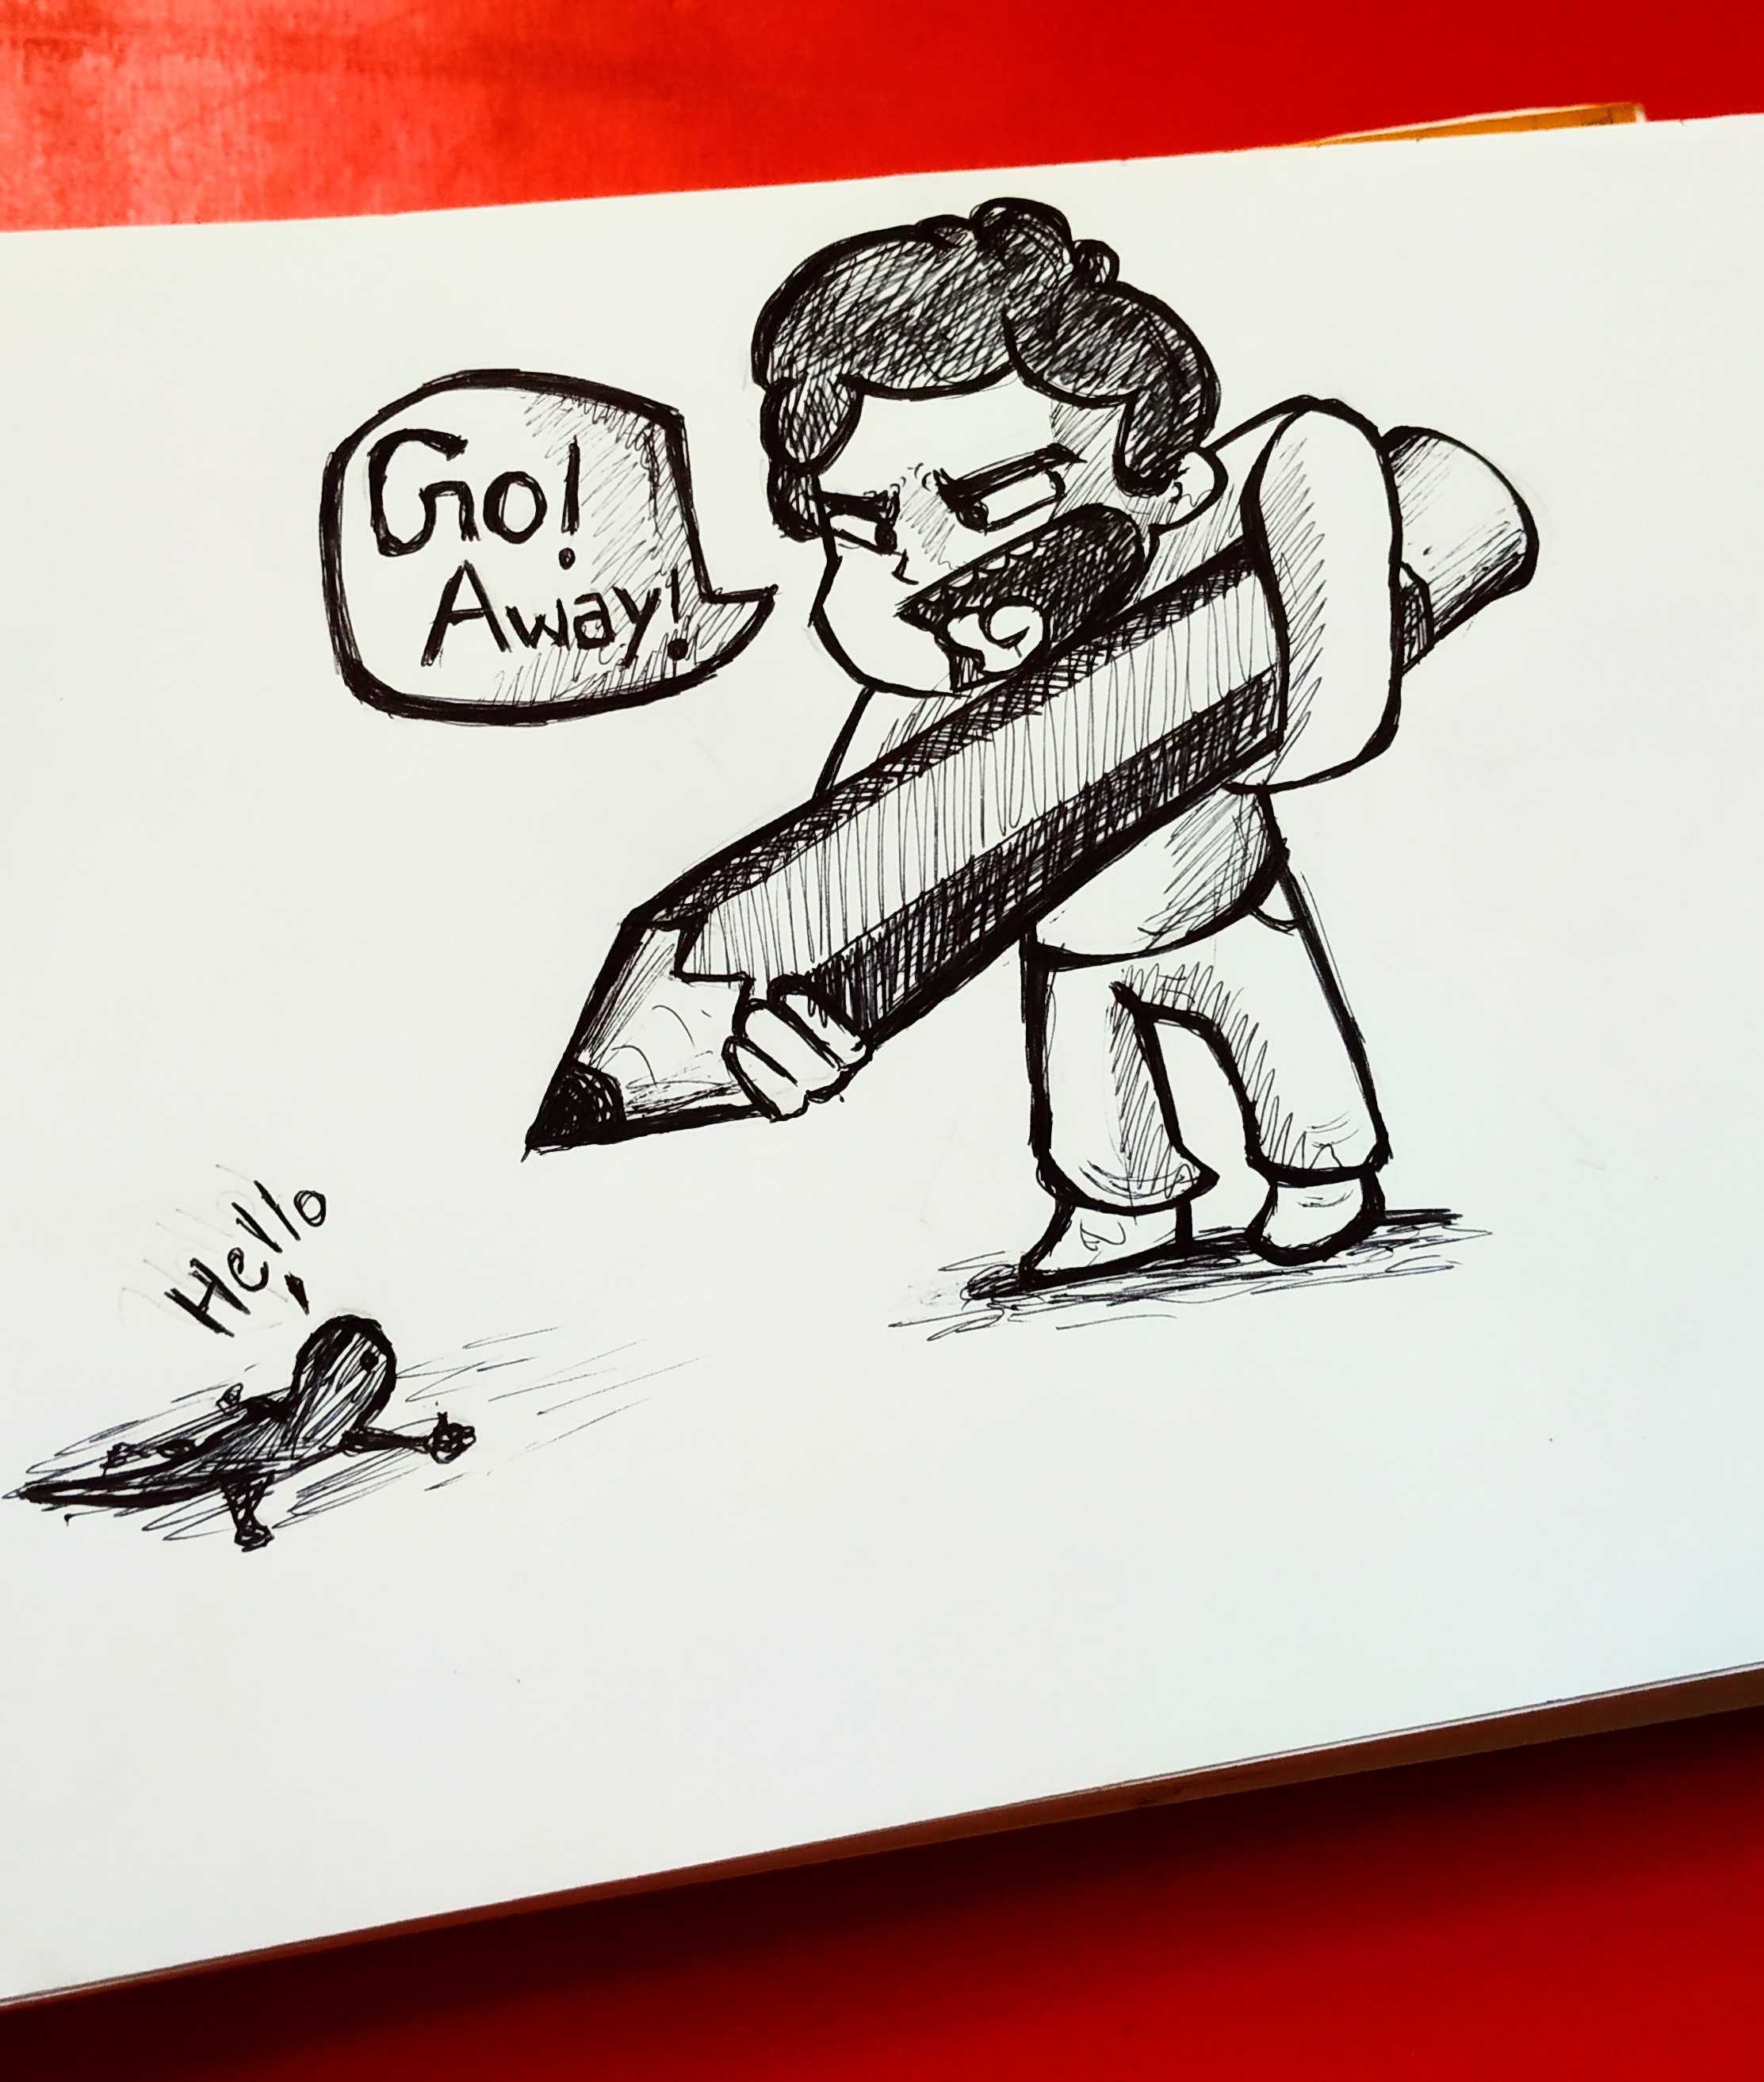 Go!
Away!
Hello